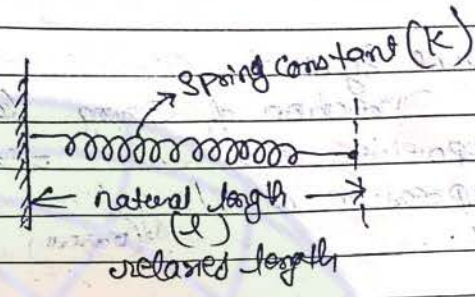 spring constant (K)
natural length
(l)
relaxed length